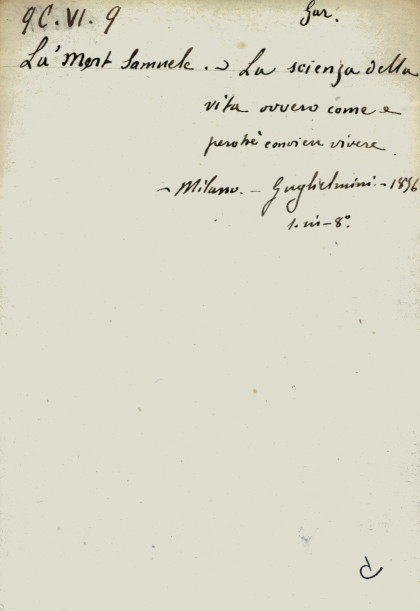 9C. VI. 9
Gur.
La' Mert Samuele. - La scienza della
vita ovvero come e
perchè convien vivere
- Milano. - Guglielmini. - 1856
1. in-8°.